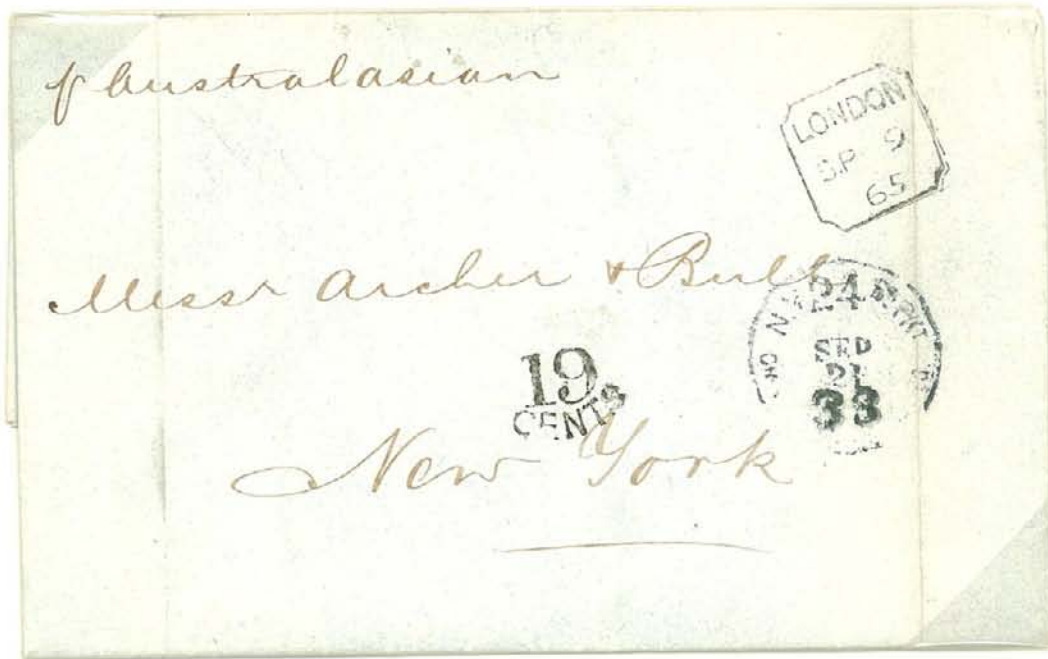 p Australasian
LONDON
SP 9
65
Messr Archer & Bull
24
N.Y. PKT
SEP
21
33
19
CENTS
New York